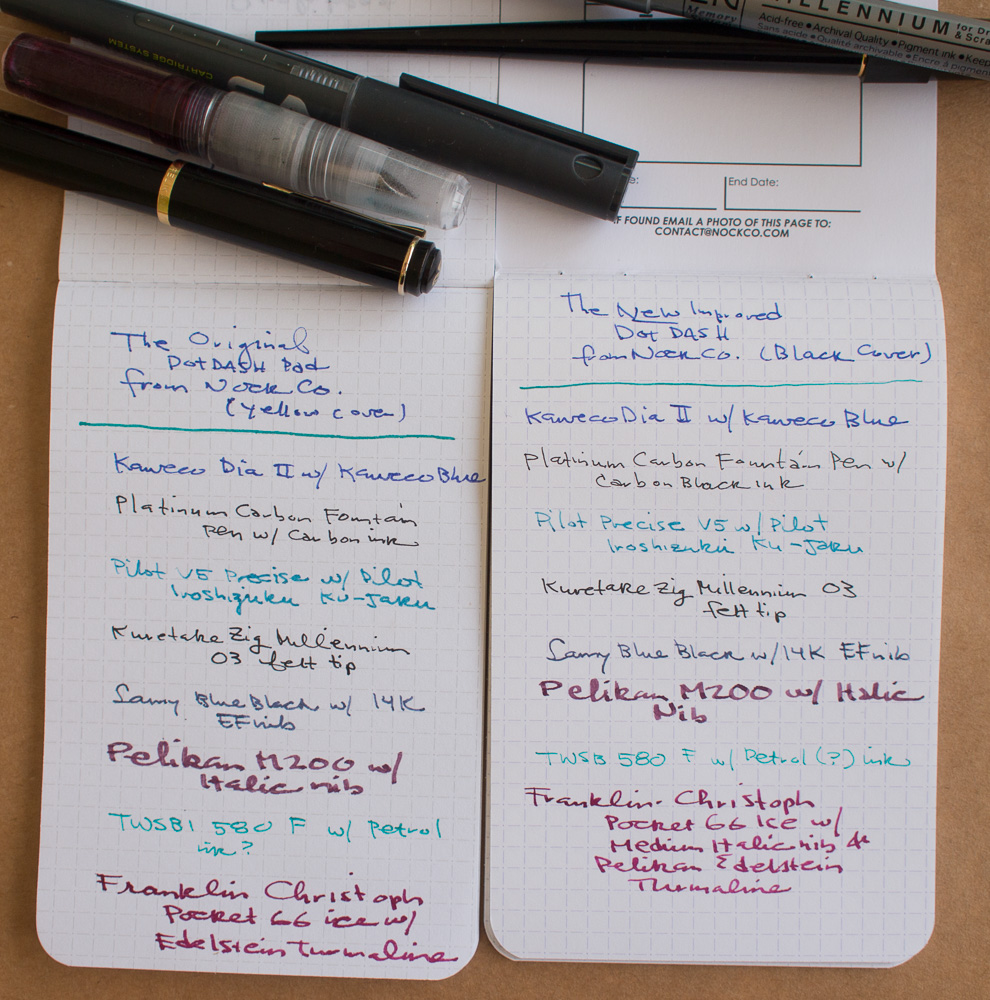 CARTRIDGE SYSTEM
Memory
MILLENNIUM
for Dr
& Scra
Acid-free • Archival Quality • Pigment ink • Keep
Sans acide • Qualité archivable • Encre à pigme
e:
End Date:
F FOUND EMAIL A PHOTO OF THIS PAGE TO:
CONTACT@NOCKCO.COM
The Original
DotDASH Pad
from Nock Co.
(Yellow cover)
Kaweco Dia II w/ Kaweco Blue
Platinum Carbon Fountain
Pen w/ Carbon ink
Pilot V5 Precise w/ Pilot
Iroshizuku Ku-Jaku
Kuretake Zig Millennium
03 felt tip
Lamy Blue Black w/ 14K
EF nib
Pelikan M200 w/
Italic nib
TWSBI 580 F w/ Petrol
ink?
Franklin Christoph
Pocket 66 ice w/
Edelstein Turmaline
The New Improved
Dot DASH
from Nock Co. (Black Cover)
Kaweco Dia II w/ Kaweco Blue
Platinum Carbon Fountain Pen w/
Carbon Black ink
Pilot Precise V5 w/ Pilot
Iroshizuku Ku-Jaku
Kuretake Zig Millennium 03
felt tip
Lamy Blue Black w/ 14K EF nib
Pelikan M200 w/ Italic
Nib
TWSB 580 F w/ Petrol (?) ink
Franklin-Christoph
Pocket 66 Ice w/
Medium Italic nib &
Pelikan Edelstein
Turmaline